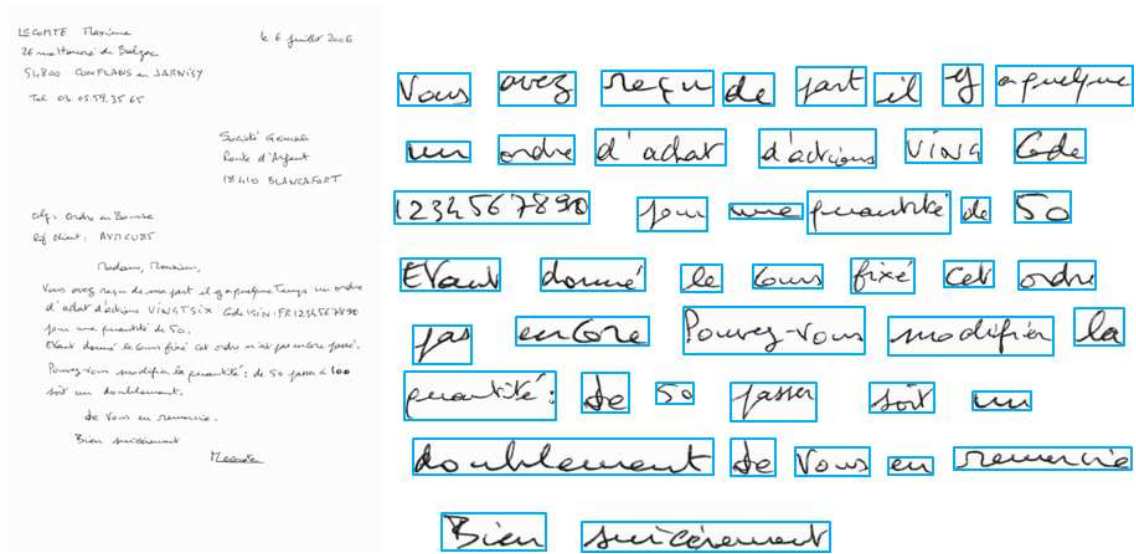 LECOMTE Maxime
le 6 juillet 2006
26 rue Honoré de Balzac
54800 CONFLANS en JARNISY
Tel 03.05.59.35.65
Société Generale
Route d'Argent
18410 BLANCAFORT
Obj: Ordre en Bourse
Ref client: 
Madame, Monsieur,
Vous avez reçu de ma part il y a quelque Temps un ordre
d'achat d'actions VINGT SIX Code ISIN: FR1234567890
pour une quantité de 50.
Etant donné le Cours fixé cet ordre n'est pas encore passé.
Pouvez-vous modifier la quantité: de 50 passer à 100
soit un doublement.
de Vous en remercie.
Bien sincèrement
Vous avez reçu de part il y a quelque
un ordre d'achat d'actions VING Code
1234567890 pour une quantité de 50
Etant donné le Cours fixé cet ordre
pas encore Pouvez-vous modifier la
quantité: de 50 passer soit un
doublement de Vous en remercie
Bien sincèrement